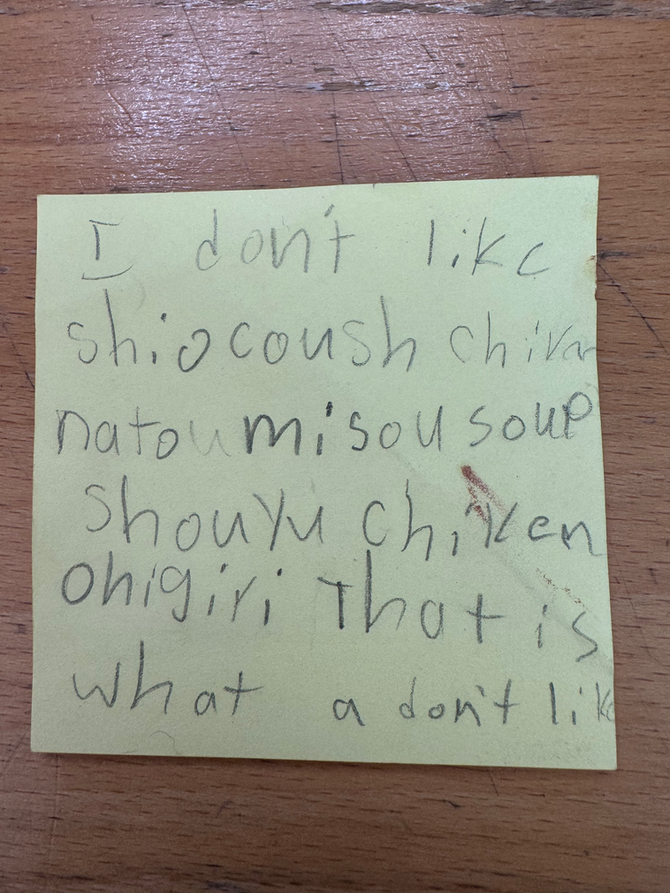 I don't like
shiocoush chiken
natou misou soup
shouyu chiken
onigiri That is
what a don't like